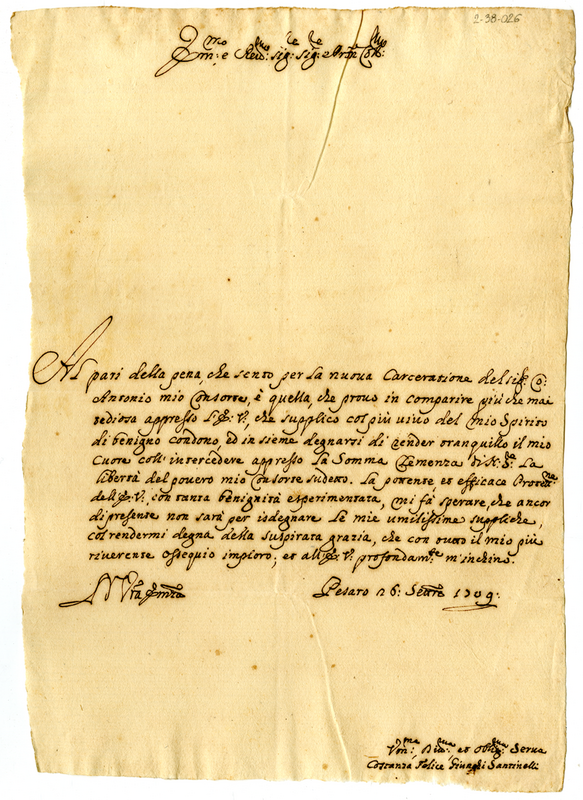 2-38-026
Ill.mo e Rev.mo Sig.re Sig.re e Pron Col.mo
Al pari della pena, che sento per la nuova Carceratione del sig.r Co:
Antonio mio Consorte, è quella, che provo in comparire più che mai
tediosa appresso V.S. Ill.ma, che supplico col più vivo del mio Spirito
di benigno condono, ed insieme degnarsi di render tranquillo il mio
Cuore coll'intercedere appresso la Somma Clemenza di N. S.re la
libertà del povero mio Consorte sudetto. La potente et efficace Protett.ne
dell' V. con tanta benignità esperimentata, mi fà sperare, che ancor
di presente non sarà per isdegnare le mie umilissime suppliche,
col rendermi degna della suspirata grazia, che con tutto il mio più
riverente ossequio imploro; et all' V. profondam.te m'inchino.
Pesaro 26: Settre 1709:
Um.ma Div.ma et Oblig.ma Serva
Costanza Felice Giunchi Santinelli